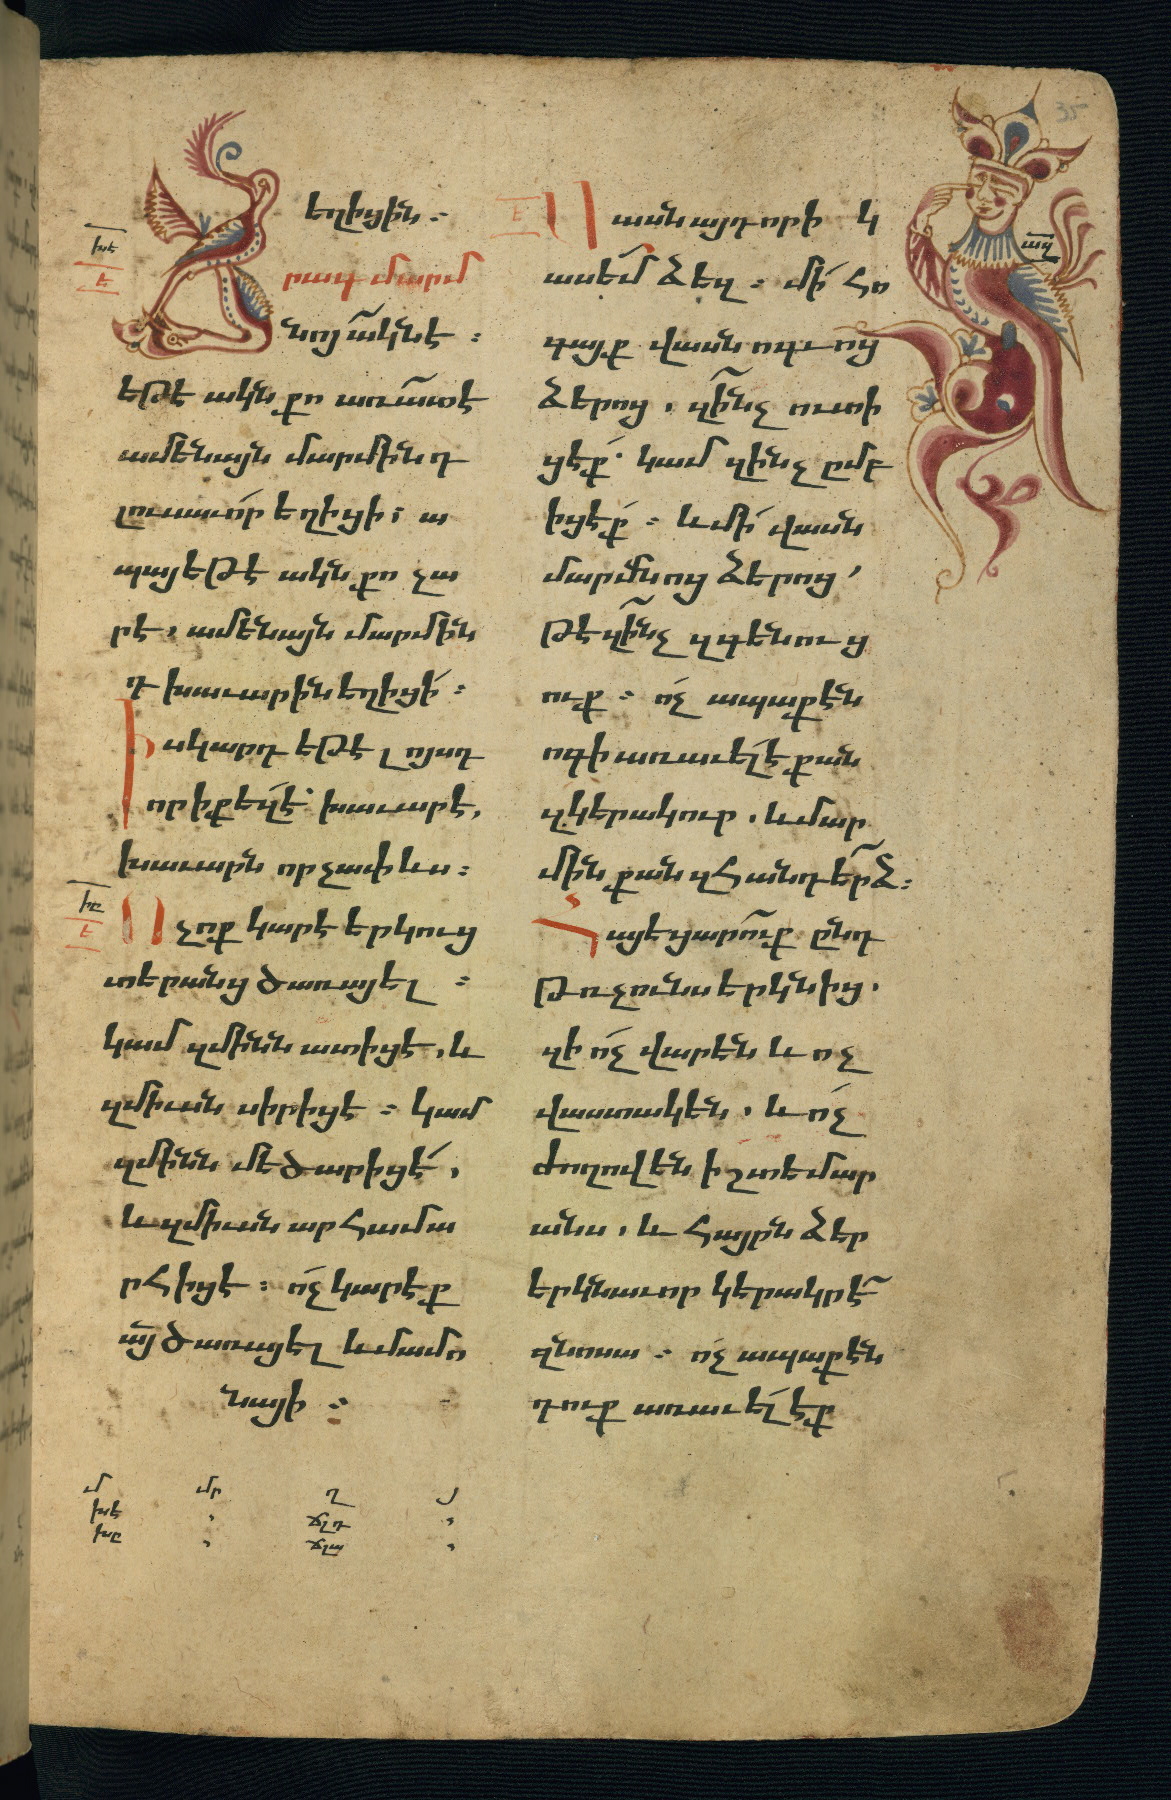 35
եղիցին ։
խէ
Ճրագ մարմ
է
նոյ ակն է ։
եթէ ակն քո առատ է
ամենայն մարմին դ
լուսաւոր եղիցի ։ ա
պա եթէ ակն քո չա
ր է, ամենայն մարմին
դ խաւարին եղիցի ։
Իսկ արդ եթէ լոյսդ
որ ի քեզ է՝ խաւար է,
խաւարն որչափ ևս ։
խը
է
Ոչ ոք կարէ երկուց
տերանց ծառայել ։
կամ զմինն ատիցէ, և
զմիւսն սիրիցէ ։ կամ
զմինն մեծարիցէ,
և զմիւսն արհամա
րհիցէ ։ ոչ կարէք
այ ծառայել և մամո
նայի ։
Վասն այդորիկ
ասեմ ձեզ ։ մի հո
գայք վասն ոգւոց
ձերոց, զինչ ուտի
ցէք՝ կամ զինչ ըմպ
իցէք ։ և մի վասն
մարմնոց ձերոց՝
թէ զինչ զգենուց
ուք ։ ոչ ապաքէն
ոգի առաւել է քան
զկերակուր, և մար
մին քան զհանդերձ ։
Հայեցարուք ընդ
թռչունս երկնից,
զի ոչ վարեն և ոչ
վաստակեն, և ոչ
ժողովեն ի շտեմար
անս, և հայրն ձեր
երկնաւոր կերակրէ
զնոսա ։ ոչ ապաքէն
դուք առաւել էք
մ մր ղ յ
խէ , ճլդ ,
խը , ճլա ,